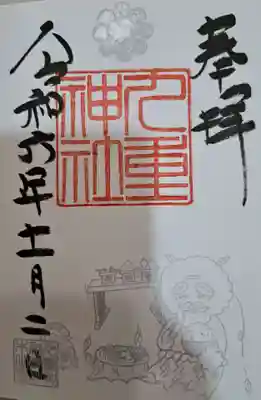 奉拝
九重
神社
令和六年十一月二日